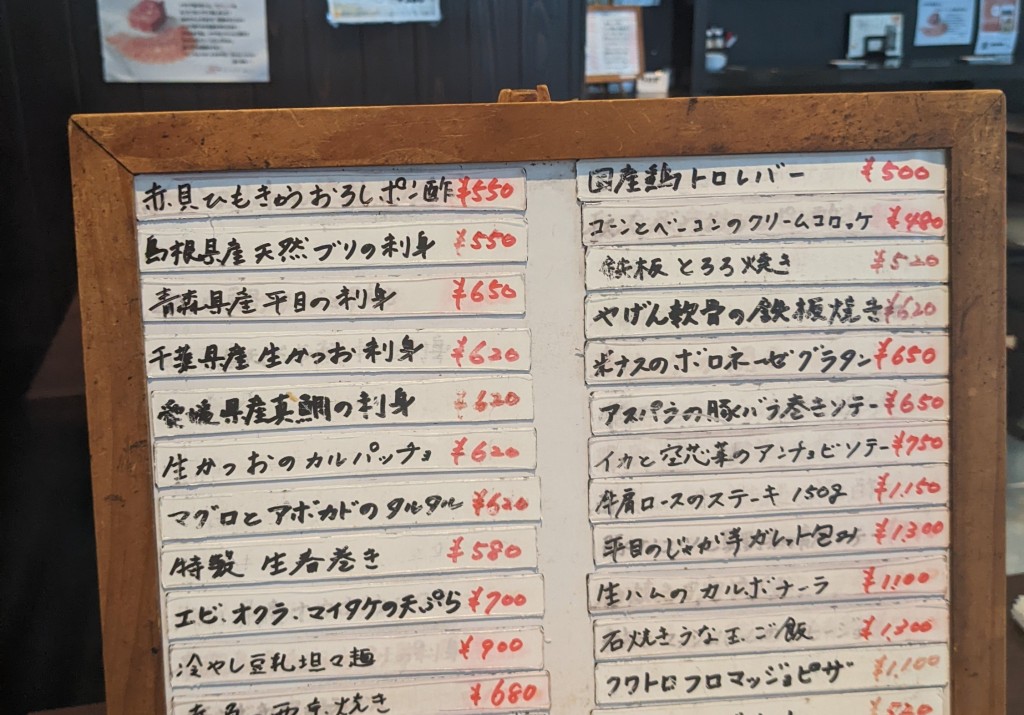 赤貝ひもきゅうおろしポン酢 ¥550
島根県産天然ブリの刺身 ¥550
青森県産平目の刺身 ¥650
千葉県産生かつお刺身 ¥620
愛媛県産真鯛の刺身 ¥620
生かつおのカルパッチョ ¥620
マグロとアボカドのタルタル ¥620
特製 生春巻き ¥580
エビ、オクラ、マイタケの天ぷら ¥700
冷やし豆乳坦々麺 ¥900
焼き ¥680
国産鶏トロレバー ¥500
コーンとベーコンのクリームコロッケ ¥480
鉄板とろろ焼き ¥520
やげん軟骨の鉄板焼き ¥620
ボナスのボロネーゼグラタン ¥650
アスパラの豚バラ巻きソテー ¥650
イカと空芯菜のアンチョビソテー ¥750
牛肩ロースのステーキ 150g ¥1,150
平目のじゃが芋ガレット包み ¥1,300
生ハムのカルボナーラ ¥1,100
石焼きうな玉ご飯 ¥1,300
クワトロフロマッジョピザ ¥1,100
¥520